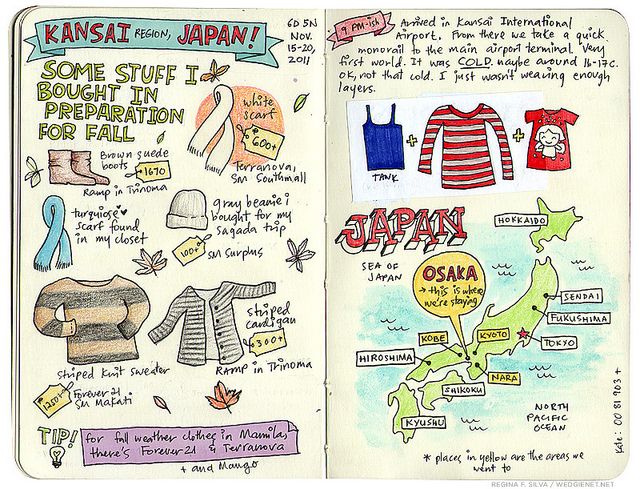 KANSAI REGION, JAPAN!
6D 5N
NOV.
15-20,
2011
SOME STUFF I
BOUGHT IN
PREPARATION
FOR FALL
white
scarf
600+
Terranova,
SM Southmall
Brown suede
boots
1670
Ramp in Trinoma
turquoise
scarf found
in my closet
gray beanie i
bought for my
Sagada trip
100+
SM Surplus
striped
cardigan
300+
Ramp in Trinoma
Striped Knit Sweater
1250+
Forever 21
SM Makati
TIP!
for fall weather clothes in Manila,
there's Forever 21 & Terranova
+ and Mango
9 PM-ish
Arrived in Kansai International
Airport. From there we take a quick
monorail to the main airport terminal. Very
first world. It was COLD. maybe around 16-17c.
OK, not that cold. I just wasn't wearing enough
layers.
TANK
+
+
JAPAN
HOKKAIDO
SEA OF
JAPAN
OSAKA
→ this is where
we're staying
SENDAI
FUKUSHIMA
TOKYO
KOBE
KYOTO
HIROSHIMA
NARA
SHIKOKU
KYUSHU
NORTH
PACIFIC
OCEAN
* places in yellow are the areas we
went to
Rate: 00 81 903 +
REGINA F. SILVA / WEDGIENET.NET